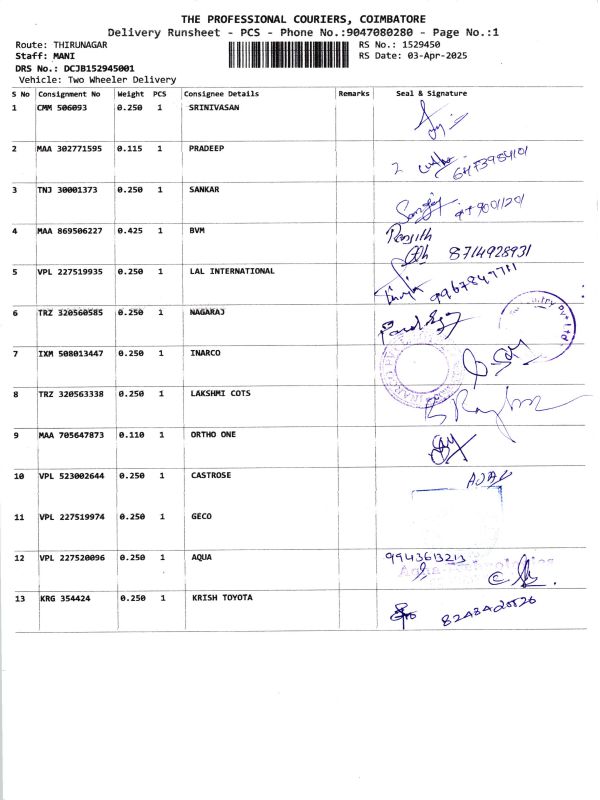 THE PROFESSIONAL COURIERS, COIMBATORE
Delivery Runsheet - PCS - Phone No.:9047080280 - Page No.:1
Route: THIRUNAGAR RS No.: 1529450
Staff: MANI RS Date: 03-Apr-2025
DRS No.: DCJB152945001
Vehicle: Two Wheeler Delivery
S No Consignment No Weight PCS Consignee Details Remarks Seal & Signature
1 CMM 506093 0.250 1 SRINIVASAN
2 MAA 302771595 0.115 1 PRADEEP
3 TNJ 30001373 0.250 1 SANKAR
4 MAA 869506227 0.425 1 BVM Ranjith
8714928931
5 VPL 227519935 0.250 1 LAL INTERNATIONAL
6 TRZ 320560585 0.250 1 NAGARAJ
7 IXM 508013447 0.250 1 INARCO
8 TRZ 320563338 0.250 1 LAKSHMI COTS
9 MAA 705647873 0.110 1 ORTHO ONE
10 VPL 523002644 0.250 1 CASTROSE
11 VPL 227519974 0.250 1 GECO
12 VPL 227520096 0.250 1 AQUA 9943613213
13 KRG 354424 0.250 1 KRISH TOYOTA